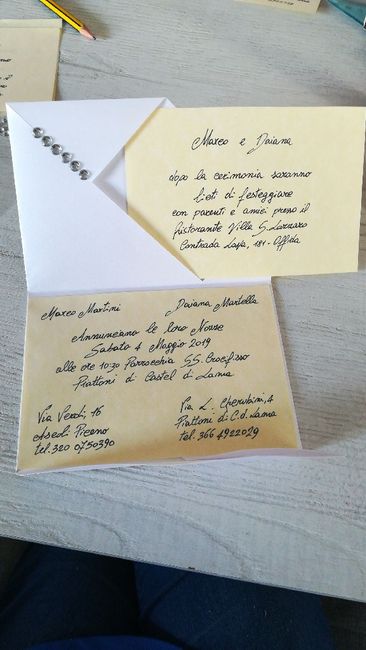 Marco e Daiana
dopo la cerimonia saranno
lieti di festeggiare
con parenti e amici presso il
ristorante Villa S. Lazzaro
Contrada Lava, 181 - Offida
Marco Martini Daiana Martella
Annunciano le loro Nozze
Sabato 4 Maggio 2019
alle ore 10:30 Parrocchia SS. Crocifisso
Piattoni di Castel di Lama
Via Verdi, 16
Ascoli Piceno
tel. 320 0750390
Via L. Cherubini, 4
Piattoni di C.d. Lama
tel. 366 4922029